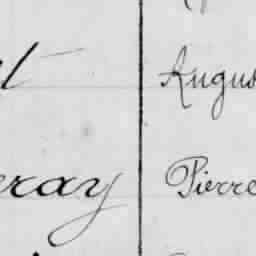 t Augus
eray Pierre